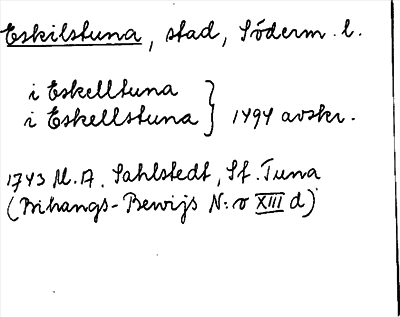 Eskilstuna, stad, Söderm. l.
i Eskelltuna
i Eskellstuna } 1494 avskr.
1743 M. A. Sahlstedt, Sf. Tuna
(Bihangs-Bewijs N:o XIII d)